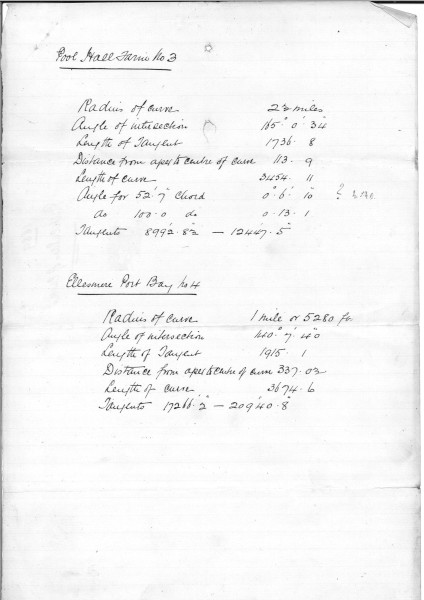 Pool Hall Farm No 3
Radius of curve 2½ miles
Angle of intersection 165° 0' 34"
Length of Tangent 1736· 8
Distance from apex to centre of curve 113· 9
Length of curve 3454· 11
Angle for 52'.7" chord 0° 6' 10" ?
do 100.0 do 0· 13· 1
Tangents 8992'.8½" — 12447'.5"
Ellesmere Port Bay No 4
Radius of curve 1 mile or 5280 ft.
Angle of intersection 140° 7' 40"
Length of Tangent 1915· 1
Distance from apex to centre of curve 337·0½
Length of curve 3674· 6
Tangents 17266'.2" — 20940'.8"